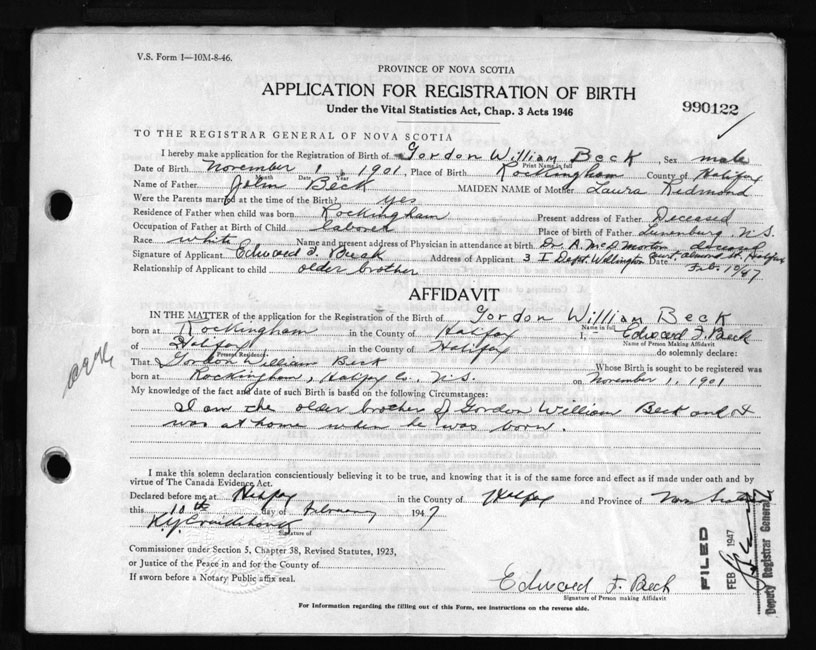 V.S. Form 1—10M-8-46.
PROVINCE OF NOVA SCOTIA
APPLICATION FOR REGISTRATION OF BIRTH
Under the Vital Statistics Act, Chap. 3 Acts 1946
990122
TO THE REGISTRAR GENERAL OF NOVA SCOTIA
I hereby make application for the Registration of Birth of Gordon William Beck, Sex male
Print Name in full
Date of Birth November 1, 1901, Place of Birth Rockingham County of Halifax
Month Date Year
Name of Father John Beck MAIDEN NAME of Mother Laura Redmond
Were the Parents married at the time of the Birth? yes
Residence of Father when child was born Rockingham Present address of Father Deceased
Occupation of Father at Birth of Child laborer Place of birth of Father Lunenburg, N.S.
Race white Name and present address of Physician in attendance at birth Dr. A. McD. Morton, deceased
Signature of Applicant Edward F. Beck Address of Applicant 3 I Dept. Wellington Court, Almond St. Halifax
Relationship of Applicant to child older brother Date Feb. 10/47
AFFIDAVIT
IN THE MATTER of the application for the Registration of the Birth of Gordon William Beck
Name in full
born at Rockingham in the County of Halifax I, Edward F. Beck
Name of Person Making Affidavit
of Halifax in the County of Halifax do solemnly declare:
Present Residence
That Gordon William Beck Whose Birth is sought to be registered was
born at Rockingham, Halifax Co., N.S. on November 1, 1901
My knowledge of the fact and date of such Birth is based on the following Circumstances:
I am the older brother of Gordon William Beck and I
was at home when he was born.
I make this solemn declaration conscientiously believing it to be true, and knowing that it is of the same force and effect as if made under oath and by
virtue of The Canada Evidence Act.
Declared before me at Halifax in the County of Halifax and Province of Nova Scotia
this 10th day of February 1947
Signature of
Commissioner under Section 5, Chapter 38, Revised Statutes, 1923,
or Justice of the Peace in and for the County of
If sworn before a Notary Public affix seal.
Edward F. Beck
Signature of Person making Affidavit
For Information regarding the filling out of this Form, see instructions on the reverse side.
FILED
FEB 1947
Deputy Registrar General